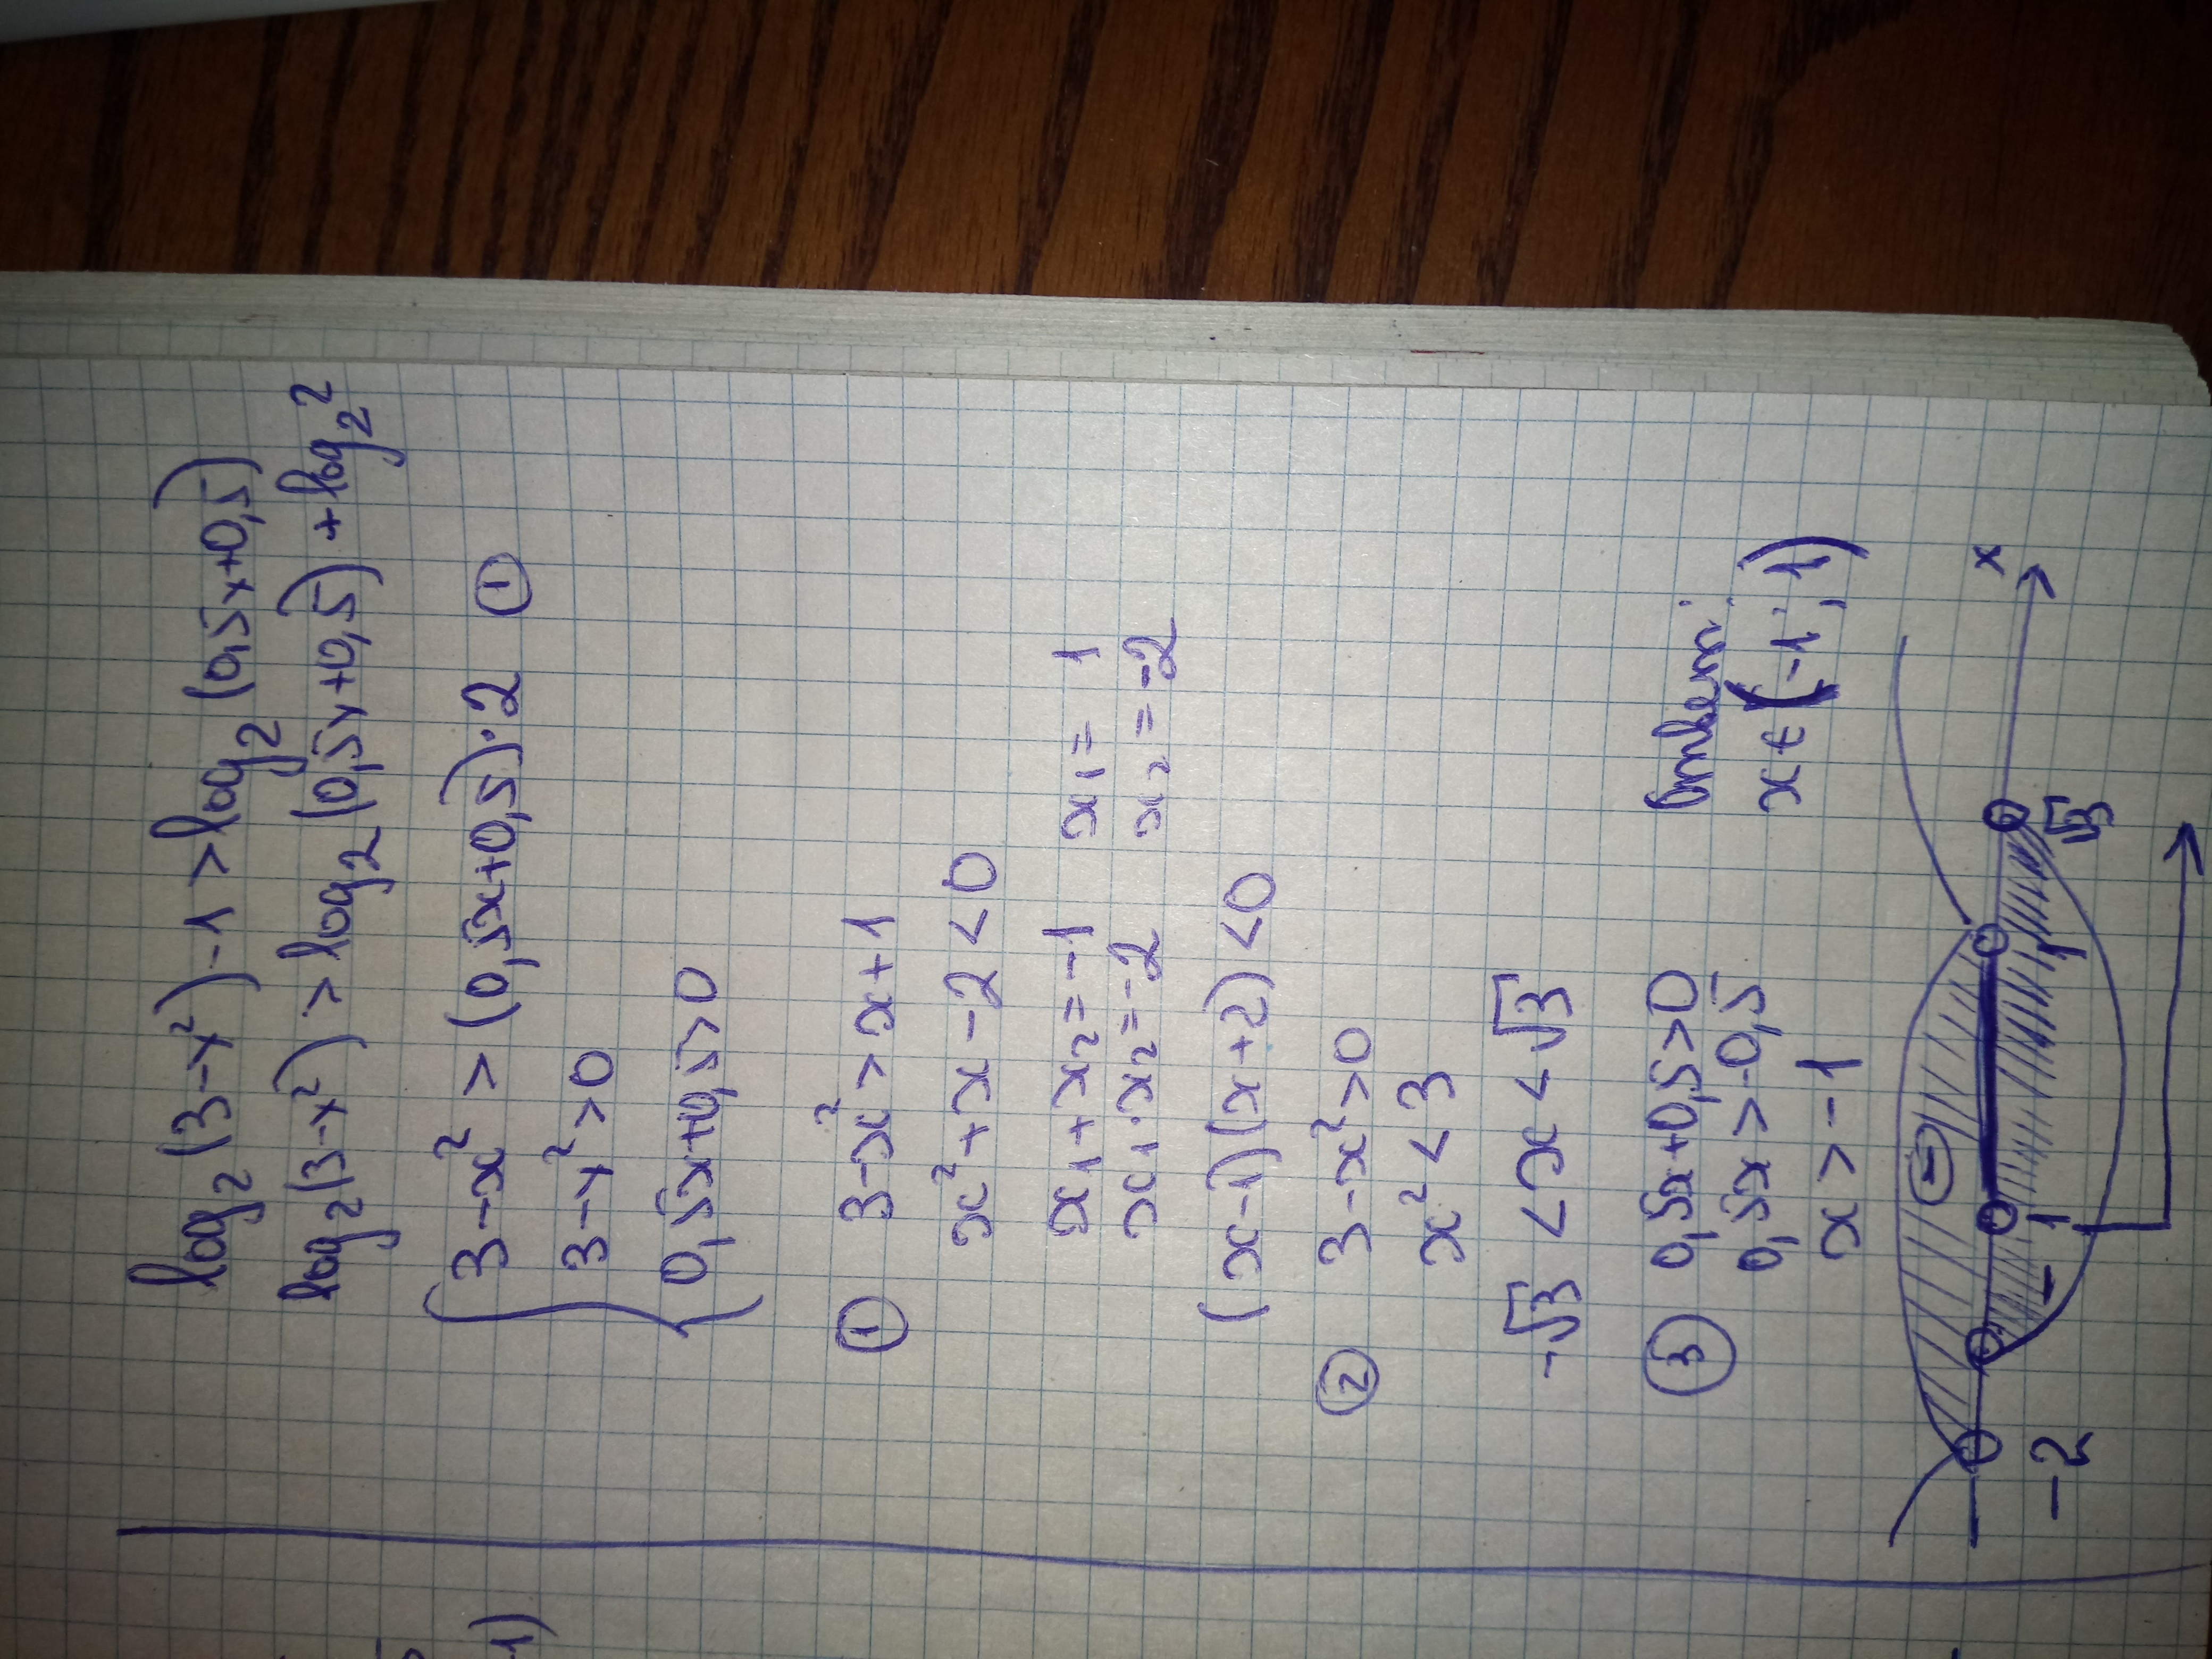 log₂(3-x²)-1>log₂(0,5x+0,5)
log₂(3-x²)>log₂(0,5x+0,5)+log₂2
3-x² > (0,5x+0,5)·2 ①
3-x²>0
0,5x+0,5>0
① 3-x²>x+1
x²+x-2<0
x₁+x₂=-1 x₁=1
x₁·x₂=-2 x₂=-2
(x-1)(x+2)<0
② 3-x²>0
x²<3
-√3<x<√3
③ 0,5x+0,5>0 Ответ:
0,5x>-0,5 x∈(-1;1)
x>-1
-
x
-2 -1 1 √3
-1)